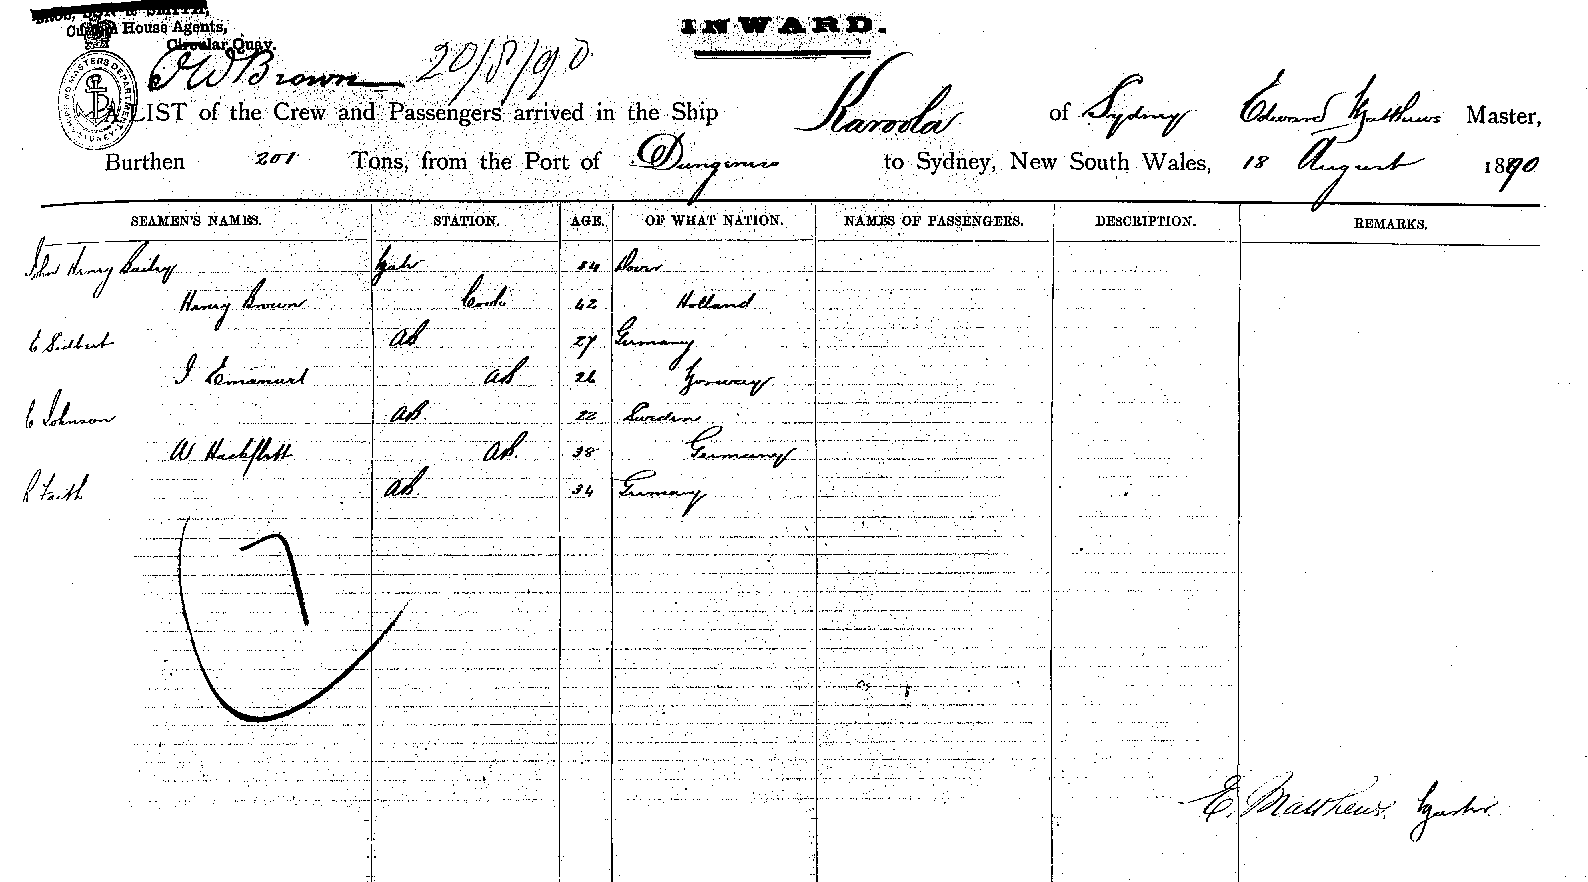 & SMITH,
Custom House Agents,
Circular Quay.
INWARD.
J W Brown 20/8/90
A LIST of the Crew and Passengers arrived in the Ship Karoola of Sydney Edward Matthews Master,
Burthen 201 Tons, from the Port of Dungeness to Sydney, New South Wales, 18 August 1890
SEAMEN'S NAMES. STATION. AGE. OF WHAT NATION. NAMES OF PASSENGERS. DESCRIPTION. REMARKS.
John Henry Bailey Mate 54 Dover
Henry Brown Cook 42 Holland
E Seilbert AB 27 Germany
I Emanuel AB 26 Norway
E Johnson AB 22 Sweden
W AB 38 Germany
R AB 34 Germany
7
E. Matthews Master